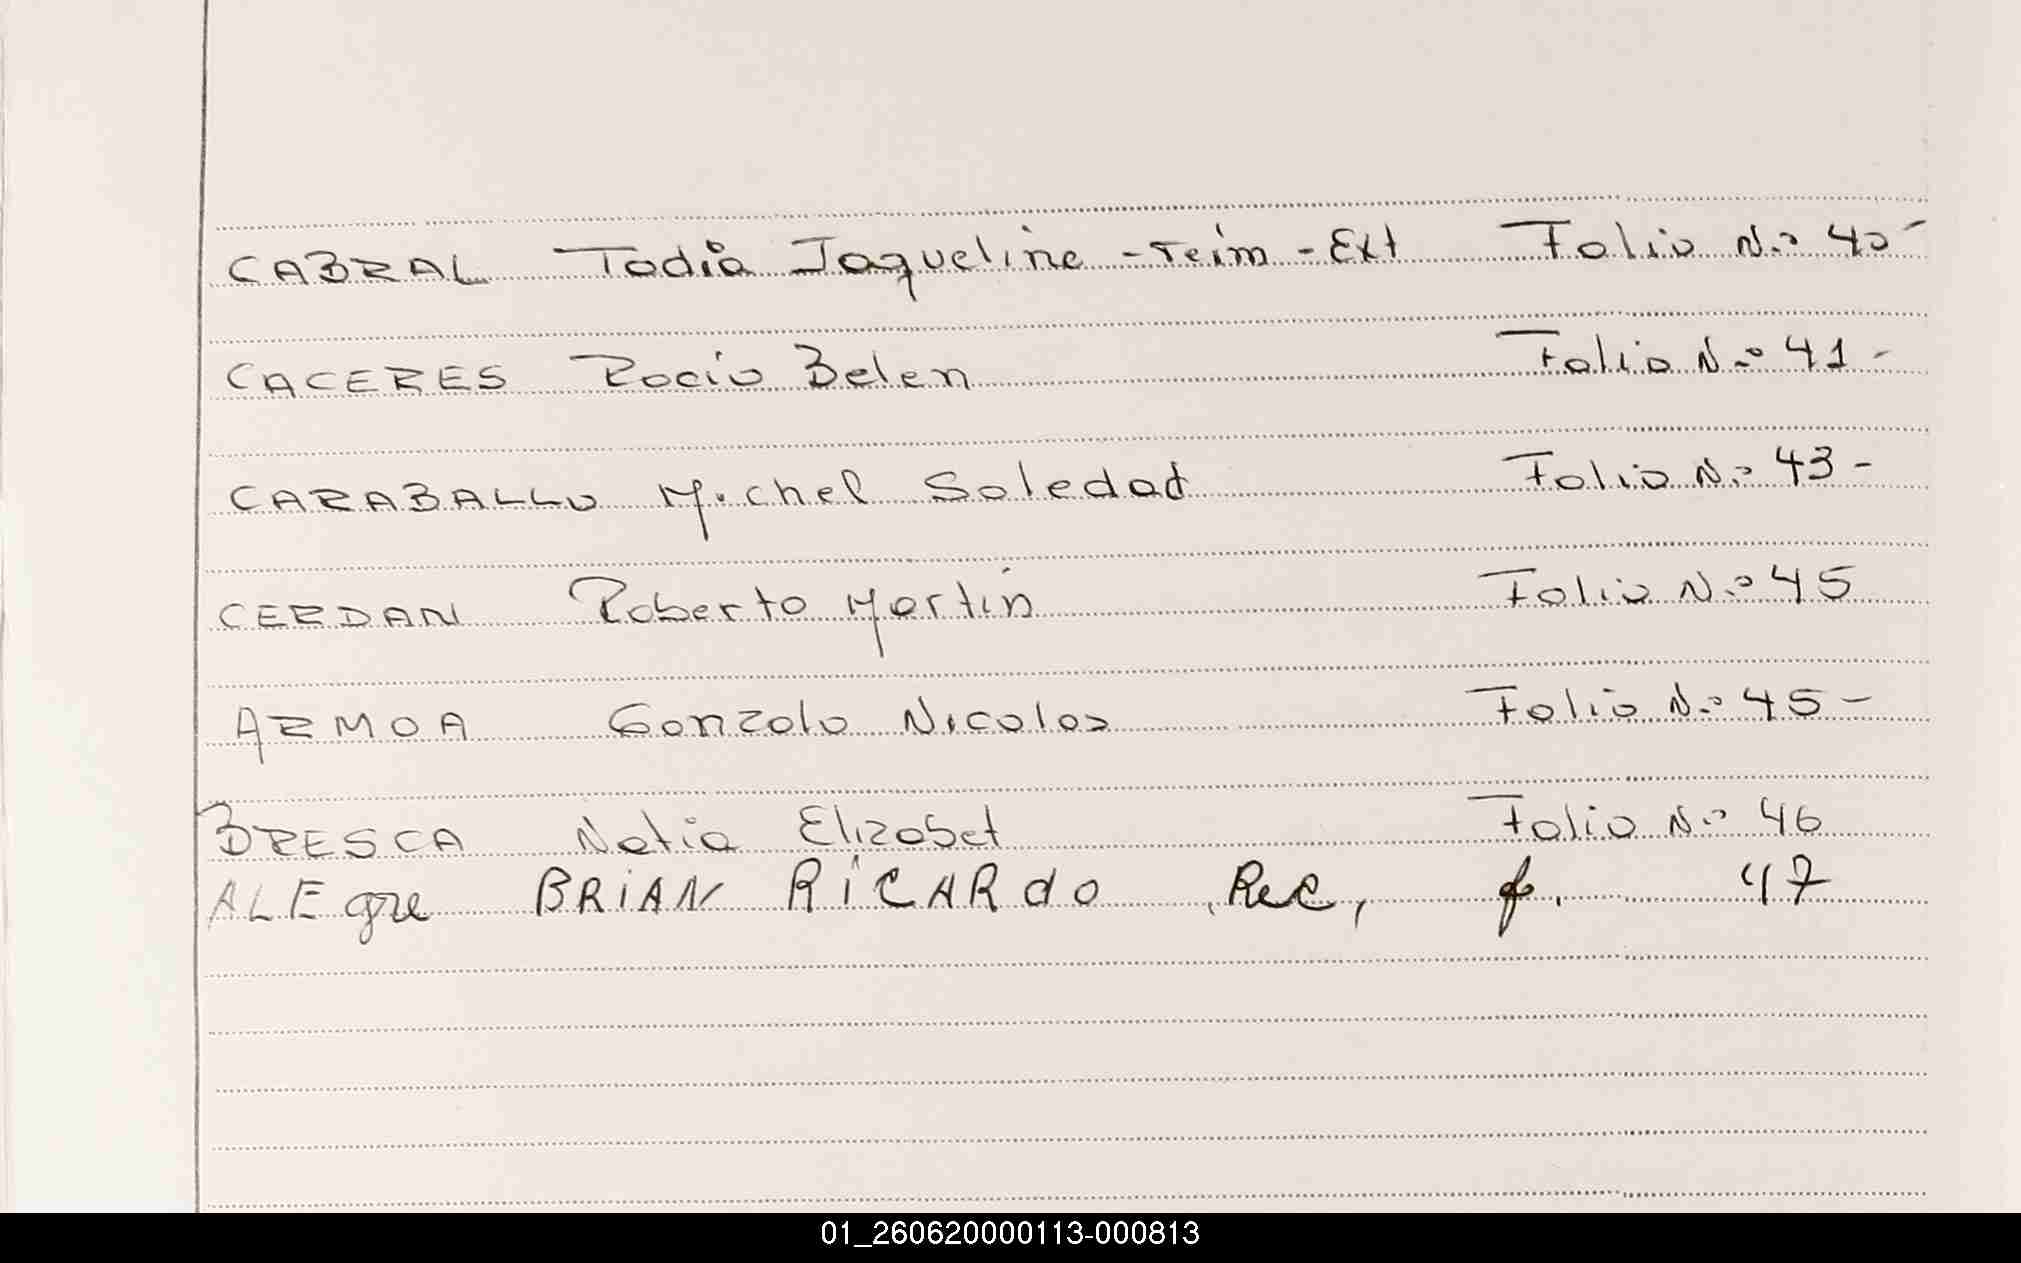 CABRAL Tadia Jaqueline - reim - Ext Folio N.º 40
CACERES Rocio Belen Folio N.º 41 -
CARABALLO Michel Soledad Folio N.º 43 -
CERDAN Roberto Martin Folio N.º 45
ARMOA Gonzalo Nicolas Folio N.º 45 -
BRESCA Natia Elizabet Folio N.º 46
ALEgre BRiAN RiCARdo Rec, f. 47
01_260620000113-000813